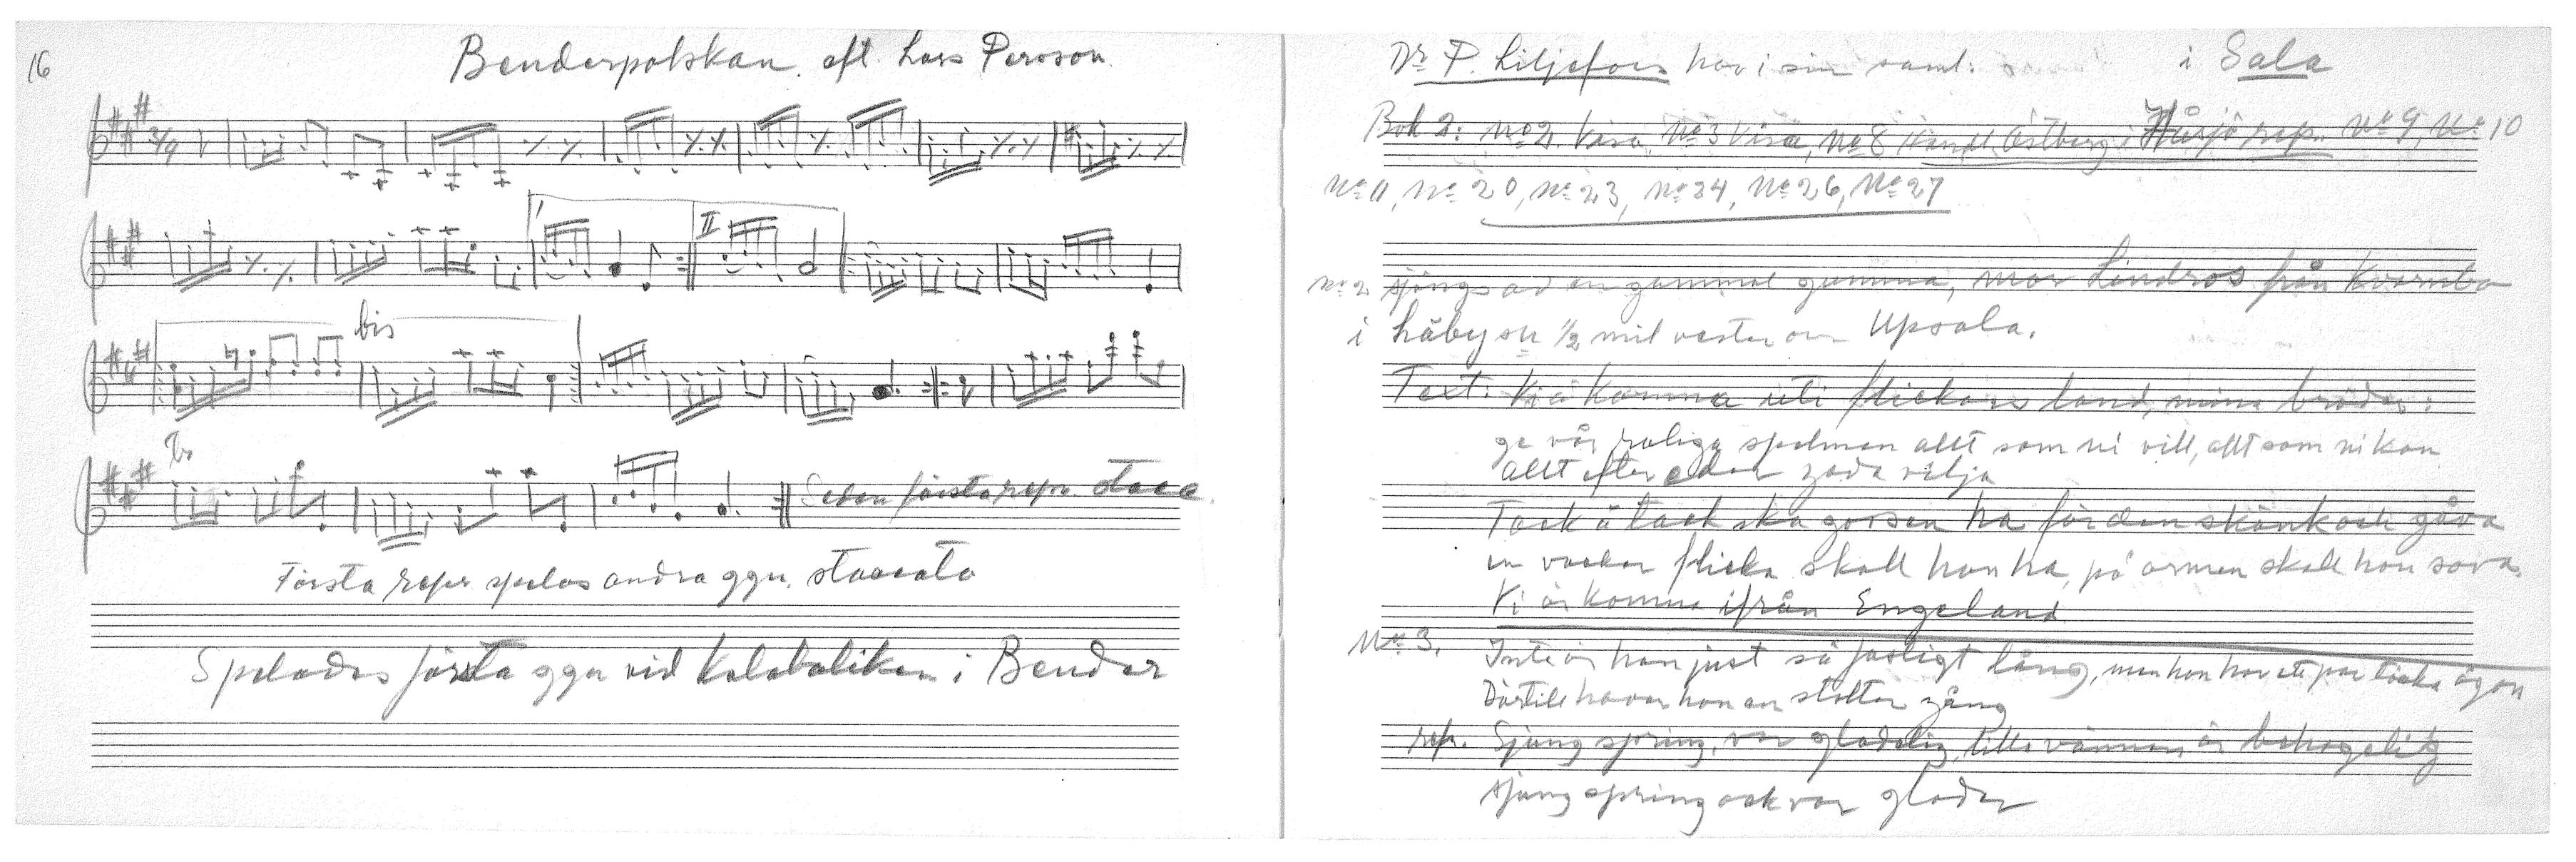 16
Benderpolskan. eft. Lars Persson
2/4
I
II
bis
Sedan första repr. stacc.
Första repr spelas andra ggn. staccato
Spelades första ggn vid Kalabaliken i Bender
Dr P. Liljefors har i sin saml: i Sala
Bok 2: No 2. Visa, No 3 Visa, No 8 Östberg i repr. No 9, No 10
No 11, No 20, No 23, No 24, No 26, No 27
No 2 sjöngs av en gammal gumma, mor Lindros från Kvarnbo
i Läby sn 1/2 mil vester om Upsala.
Text: Vi ä komna uti flickors land, mina bröder:
ge vår roliga spelman allt som ni vill, allt som ni kan
allt efter eder goda vilja
Tack å tack ska gossen ha för den skänk och gåva
en vacker flicka skall han ha, på armen skall hon sova.
Vi är komna ifrån Engeland
No 3. Inte är han just så farligt lång, men han har ett par täcka ögon
Därtill haver han en stolter gång
repr. Sjung spring, var gladelig, lilla vännen är behagelig
sjung spring och var glader